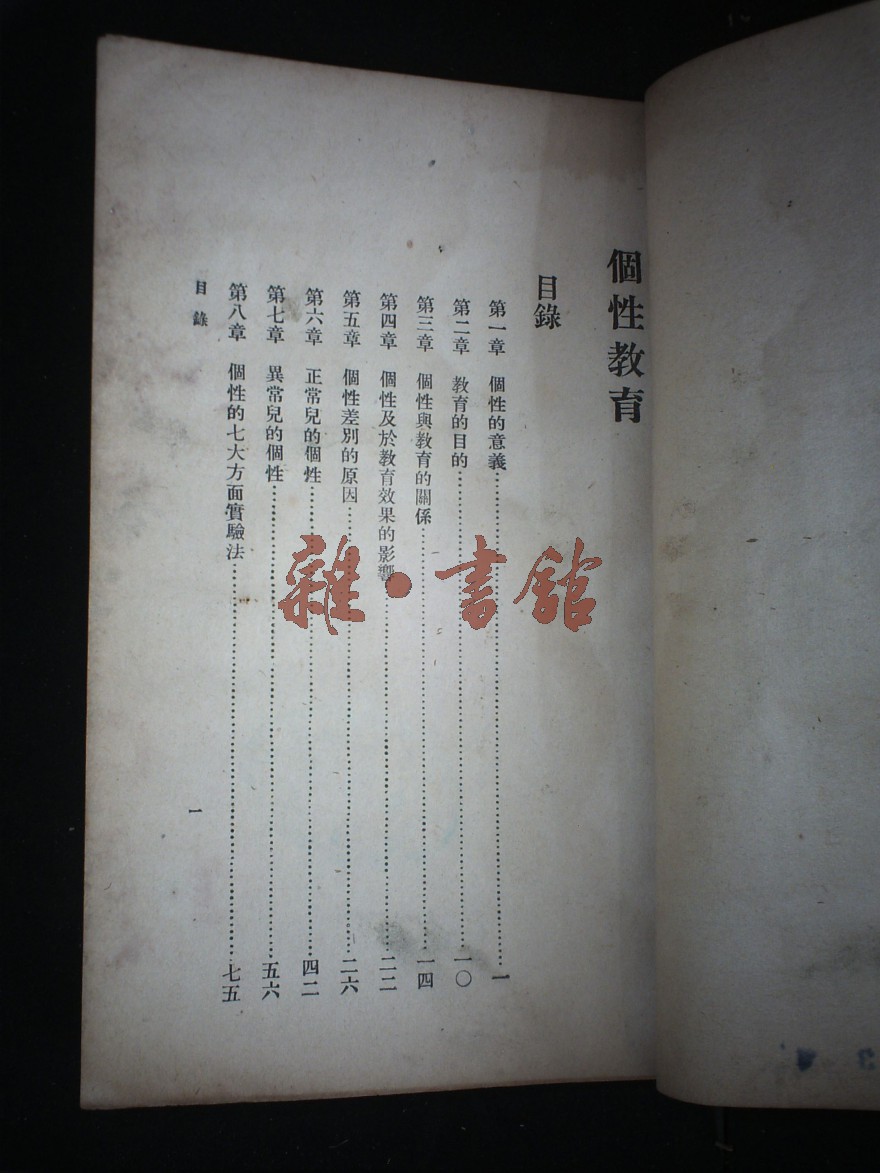 個性教育
目錄
第一章 個性的意義……一
第二章 教育的目的……一〇
第三章 個性與教育的關係……一四
第四章 個性及於教育效果的影響……二二
第五章 個性差別的原因……二六
第六章 正常兒的個性……四二
第七章 異常兒的個性……五六
第八章 個性的七大方面實驗法……七五
目錄
一
雜·書館